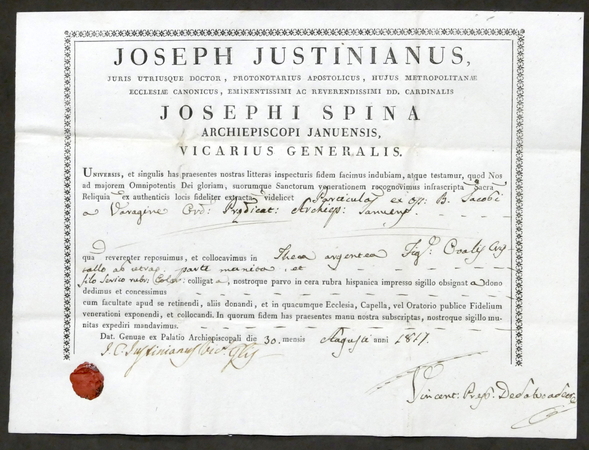 JOSEPH JUSTINIANUS,
JURIS UTRIUSQUE DOCTOR, PROTONOTARIUS APOSTOLICUS, HUJUS METROPOLITANÆ
ECCLESIÆ CANONICUS, EMINENTISSIMI AC REVERENDISSIMI DD. CARDINALIS
JOSEPHI SPINA
ARCHIEPISCOPI JANUENSIS,
VICARIUS GENERALIS.
UNIVERSIS, et singulis has praesentes nostras litteras inspecturis fidem facimus indubiam, atque testamur, quod Nos
ad majorem Omnipotentis Dei gloriam, suorumque Sanctorum venerationem recognovimus infrascripta Sacra
Reliquia ex authenticis locis fideliter extracta videlicet Particulas ex oss. B. Jacobi
a Varagine Ord: Prędicat: Archiep: Januens
qua reverenter reposuimus, et collocavimus in Theca argentea Fig: Ovalis
ab parte munita, et
filo serico rubri Color: colligata, nostroque parvo in cera rubra hispanica impresso sigillo obsignata dono
dedimus et concessimus
cum facultate apud se retinendi, aliis donandi, et in quacumque Ecclesia, Capella, vel Oratorio publice Fidelium
venerationi exponendi, et collocandi. In quorum fidem has praesentes manu nostra subscriptas, nostroque sigillo mu-
nitas expediri mandavimus.
Dat. Genuae ex Palatio Archiepiscopali die 30. mensis Augusti anni 1817.
Justinianus Vic. Glis
Vincent: